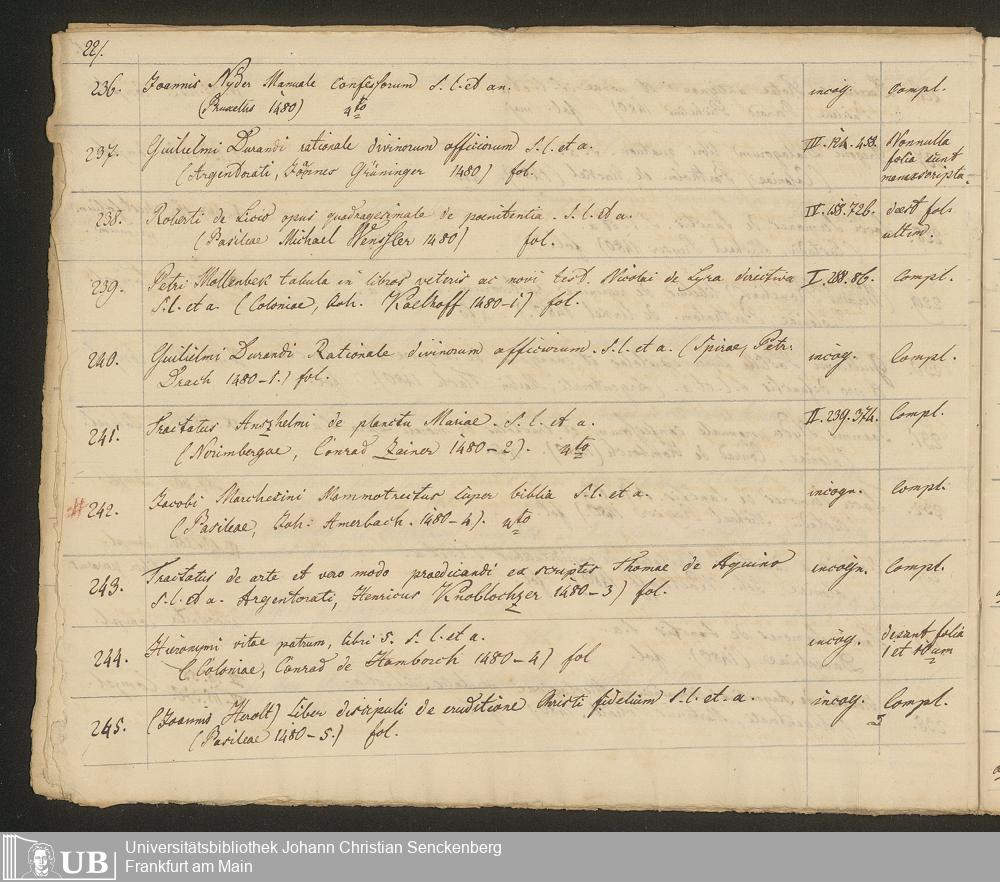 22/.
236. Joannis Nyder Manuale Confessorum S. l. et an. incog. Compl.
(Bruxellis 1480) 4to
237. Guilielmi Durandi rationale divinorum officiorum S. l. et a. IV. 124. 453. Nonnulla
folia sunt
(Argentorati, Joannes Grüninger 1480) fol. manuscripta.
238. Roberti de Licio opus quadragesimale de poenitentia. S. l. et a. IV. 158. 726. deest fol.
(Basileae Michael Wenssler 1480) fol. ultim.
239. Petri Mollenbek tabula in libros veteris ac novi test. Nicolai de Lyra directiva I. 288. 86. Compl.
S. l. et a. (Coloniae, Joh. Koelhoff 1480-1.) fol.
240. Guilielmi Durandi Rationale divinorum officiorum. S. l. et a. (Spirae, Petr. incog. Compl.
Drach 1480-1.) fol.
241. Tractatus Anszhelmi de planctu Mariae. S. l. et a. II. 239. 374. Compl.
(Norimbergae, Conrad Zainer 1480-2). 4to
# 242. Jacobi Marchesini Mammotrectus super biblia S. l. et a. incogn. Compl.
(Basileae, Joh. Amerbach. 1480-4). 4to
243. Tractatus de arte et vero modo praedicandi ex scriptis Thomae de Aquino incogn. Compl.
S. l. et a. Argentorati, Henricus Knoblochzer 1480-3) fol.
244. Hieronymi vitae patrum, libri 5. S. l. et a. incog. desunt folia
(Coloniae, Conrad de Homborch 1480-4) fol 1 et
245. (Joannis Herolt) Liber discipuli de eruditione Christi fidelium S. l. et. a. incog. Compl.
(Basileae 1480-5.) fol.
UB
Universitätsbibliothek Johann Christian Senckenberg
Frankfurt am Main